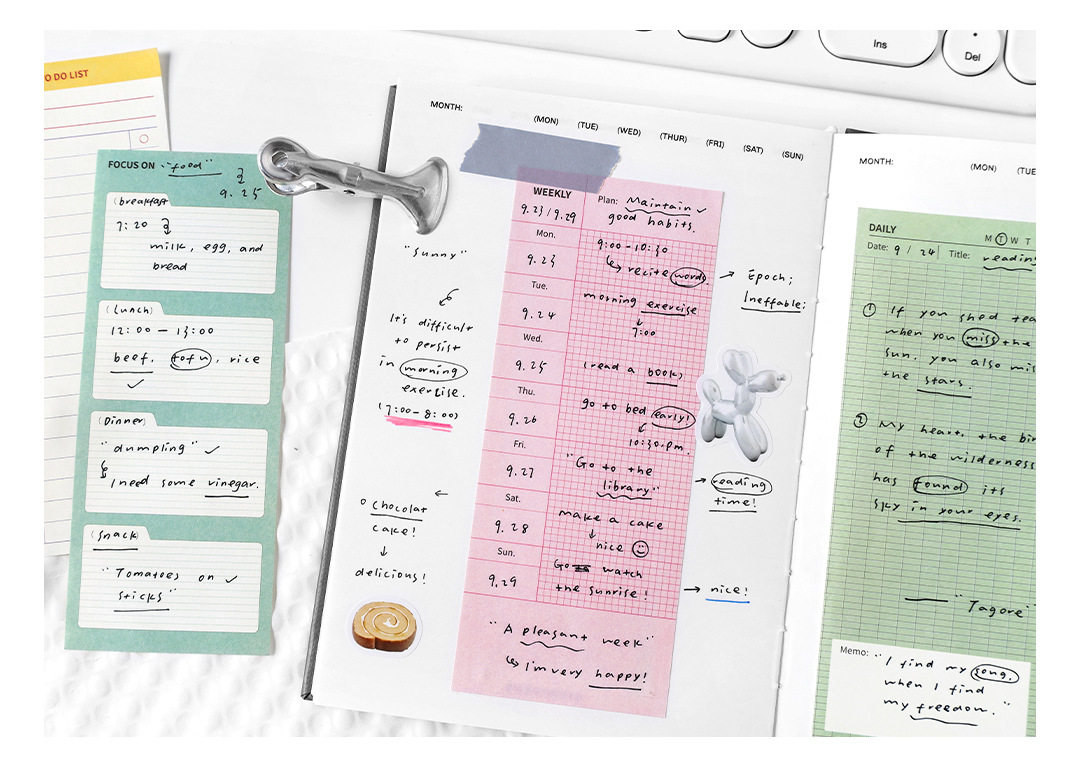 Ins
Del
O DO LIST
FOCUS ON "food"
9.25
(breakfast
7:20
milk, egg, and
bread
(Lunch)
12:00 - 13:00
beef. tofu, rice
(Dinner)
"dumpling"
I need some vinegar.
(snack)
"Tomatoes on
sticks"
MONTH:
(MON) (TUE) (WED) (THUR) (FRI) (SAT) (SUN)
WEEKLY
9.23/9.29
Plan: Maintain
good habits.
Mon.
9.23
9:00-10:30
recite words
Epoch;
Ineffable;
Tue.
9.24
morning exercise
7:00
Wed.
9.25
(read a book)
Thu.
9.26
go to bed early!
10:30.pm.
Fri.
9.27
"Go to the
library"
reading
time!
Sat.
9.28
make a cake
nice
Sun.
9.29
Go watch
the sunrise!
nice!
"A pleasant week"
I'm very happy!
"sunny"
It's difficult
to persist
in morning
exercise.
(7:00-8:00)
chocolat
cake!
delicious!
MONTH:
(MON) (TUE
DAILY
M T W T
Date: 9 / 24 Title: reading
① If you shed tea
when you miss the
sun. you also mis
the stars.
② My heart, the bir
of the wilderness
has found its
sky in your eyes.
"Tagore"
Memo: "I find my song.
when I find
my freedom."